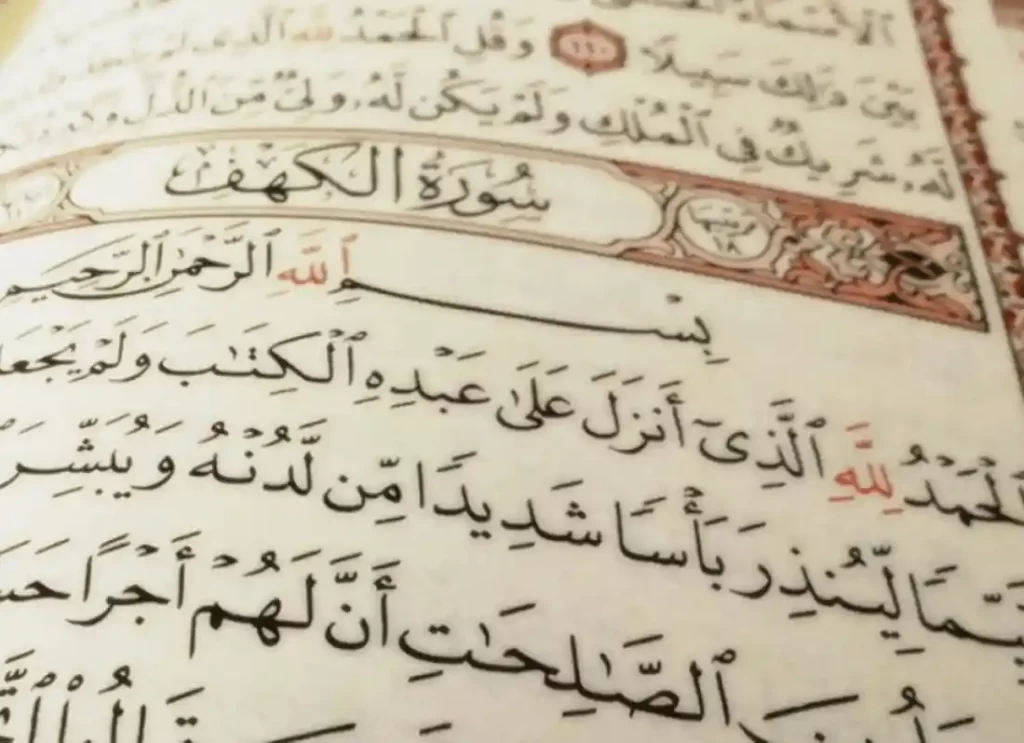 ٱلۡأَسۡمَآءُ ٱلۡحُسۡنَىٰ
بَيۡنَ ذَٰلِكَ سَبِيلًا ١١٠ وَقُلِ ٱلۡحَمۡدُ لِلَّهِ ٱلَّذِي لَمۡ
لَّهُۥ شَرِيكٞ فِي ٱلۡمُلۡكِ وَلَمۡ يَكُن لَّهُۥ وَلِيّٞ مِّنَ ٱلذُّلِّ
سُورَةُ الكَهۡفِ
ترتيبها ١٨
بِسۡمِ ٱللَّهِ ٱلرَّحۡمَٰنِ ٱلرَّحِيمِ
ٱلۡحَمۡدُ لِلَّهِ ٱلَّذِيٓ أَنزَلَ عَلَىٰ عَبۡدِهِ ٱلۡكِتَٰبَ وَلَمۡ يَجۡعَل
قَيِّمٗا لِّيُنذِرَ بَأۡسٗا شَدِيدٗا مِّن لَّدُنۡهُ وَيُبَشِّرَ
ٱلصَّٰلِحَٰتِ أَنَّ لَهُمۡ أَجۡرًا